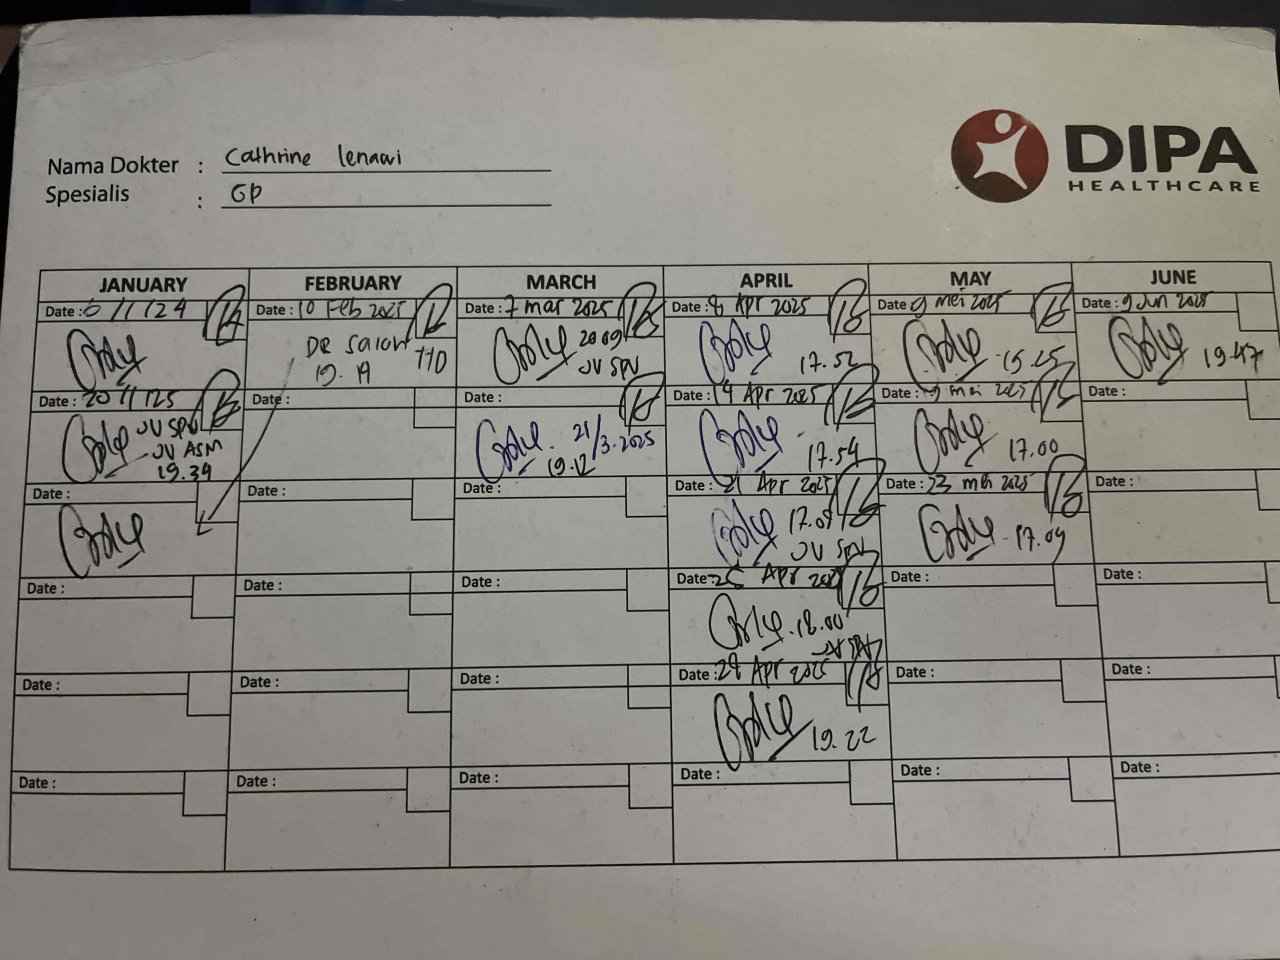 DIPA
HEALTHCARE
Nama Dokter : Cathrine
Spesialis : GP
JANUARY FEBRUARY MARCH APRIL MAY JUNE
Date : 6/1/24 Date : 10 Feb 2025 Date : 7 mar 2025 Date : 8 Apr 2025 Date : 9 mei 2025 Date : 9 Jun 2025
DR 19.19 20.09 JV SPV 17.52 15.25 19.47
Date : 20/1/25 Date : Date : Date : 14 Apr 2025 Date : mei 2025 Date :
JV SPV
JV ASM
19.39 21/3-2025 19.12 17.54 17.00
Date : Date : Date : Date : 21 Apr 2025 Date : 23 mei 2025 Date :
JV SPV 17.09
Date : Date : Date : Date : 25 Apr Date : Date :
18.00
Date : Date : Date : Date : 29 Apr 2025 Date : Date :
19.22
Date : Date : Date : Date : Date : Date :